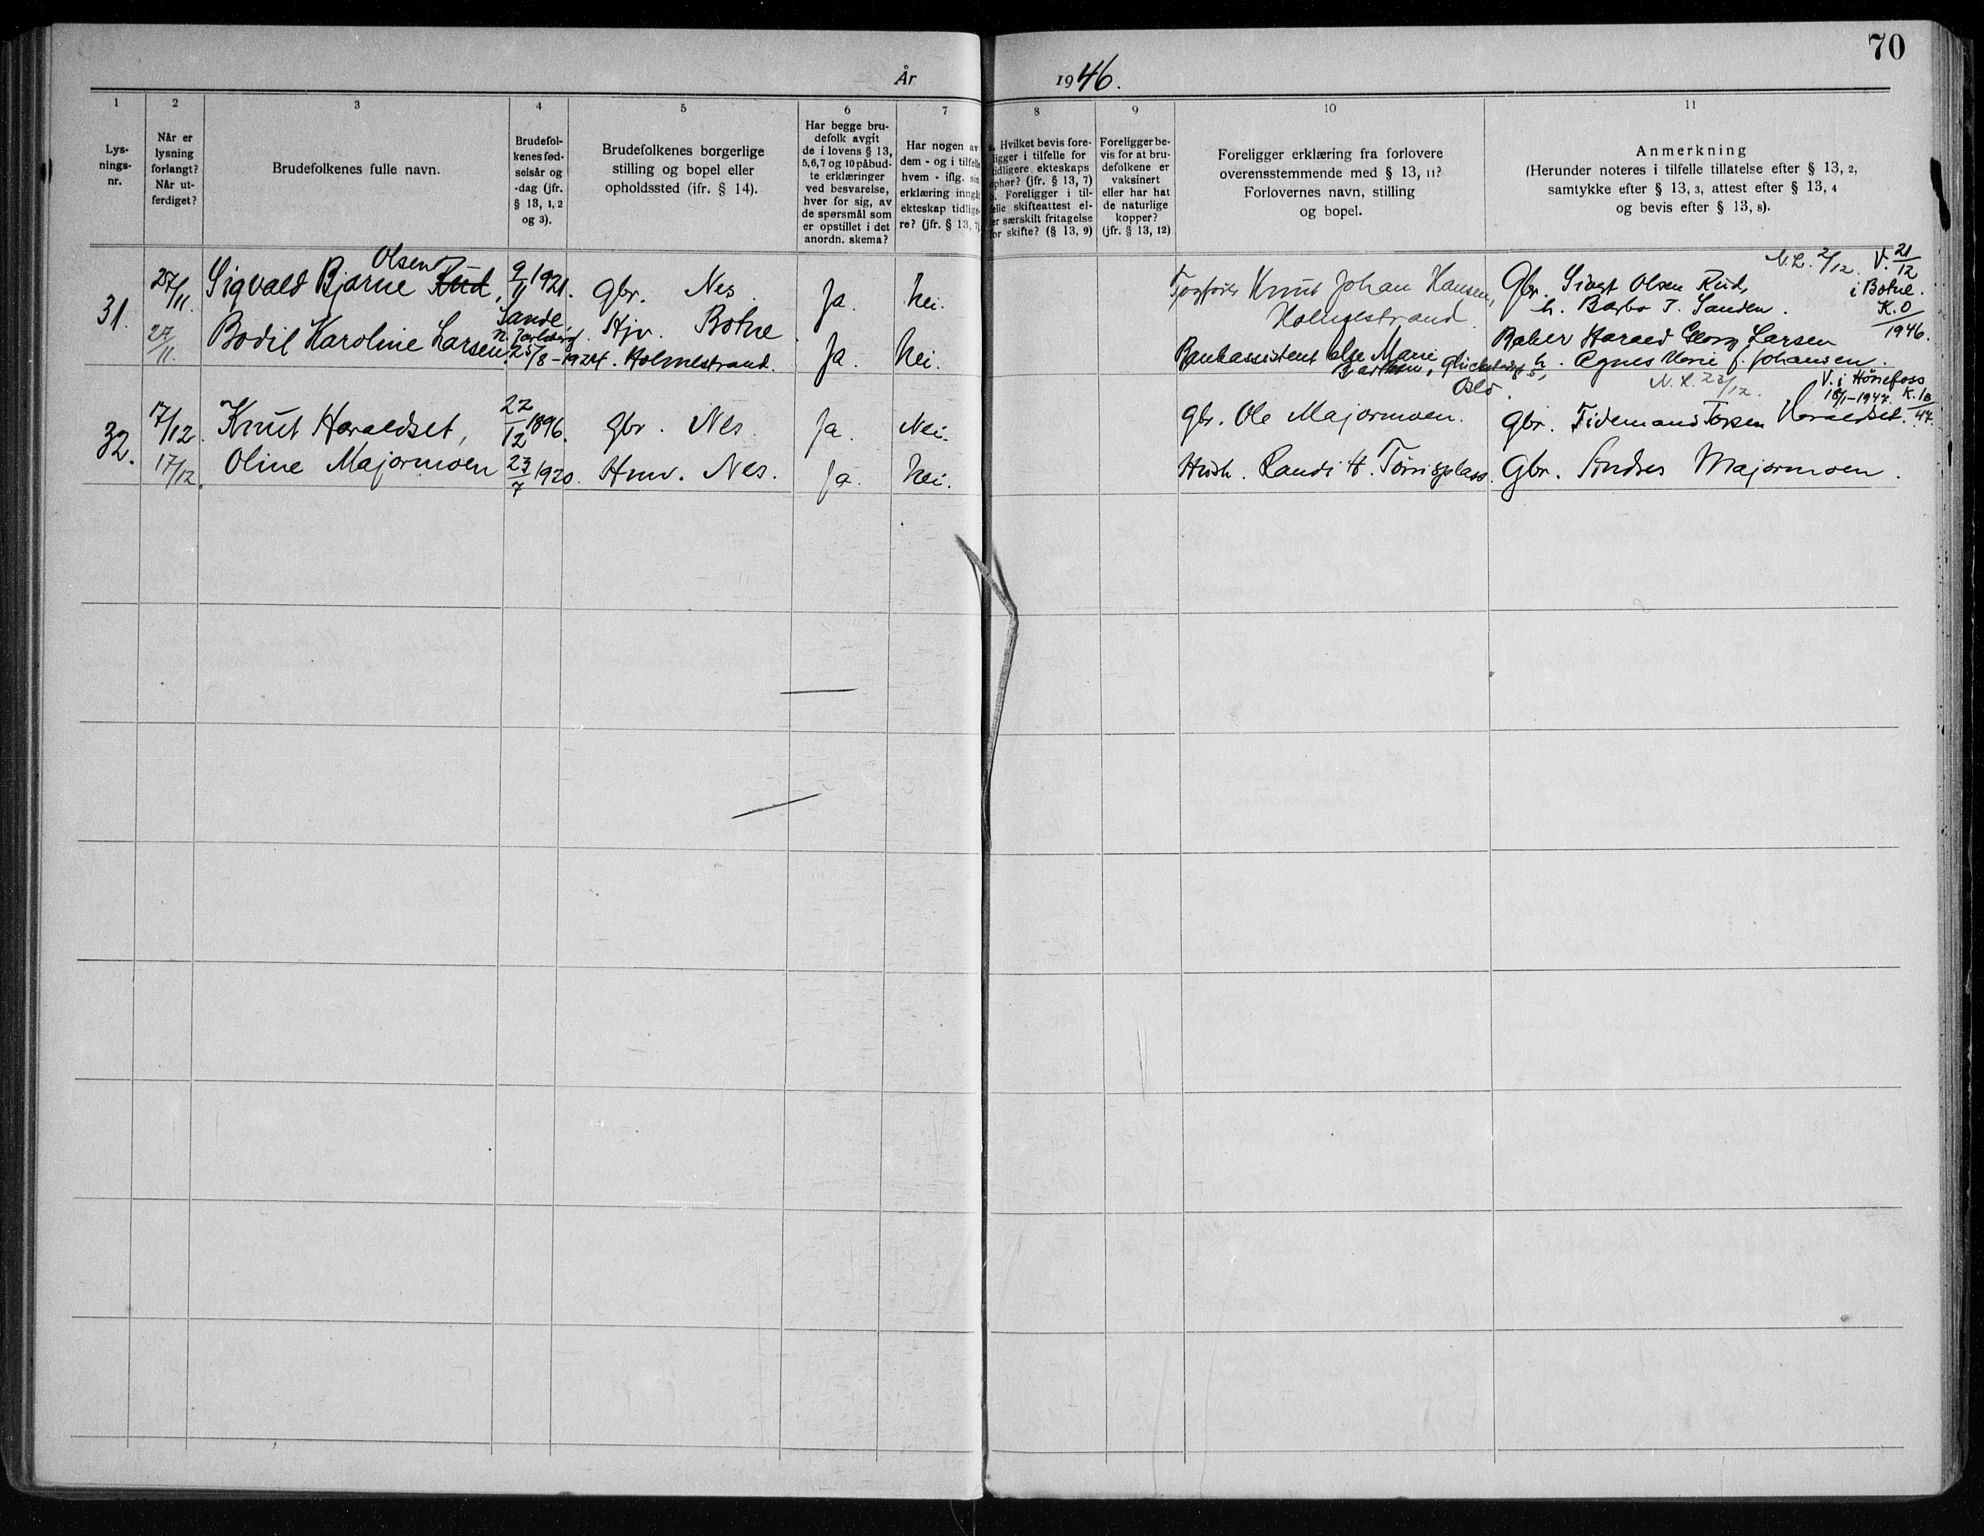 70
År 1946.
1 2 3 4 5 6 7 8 9 10 11
Lys-
nings-
nr.
Når er
lysning
forlangt?
Når ut-
ferdiget?
Brudefolkenes fulle navn.
Brudefol-
kenes fød-
selsår og
-dag (jfr.
§ 13, 1, 2
og 3).
Brudefolkenes borgerlige
stilling og bopel eller
opholdssted (jfr. § 14).
Har begge bru-
defolk avgit
de i lovens § 13,
5, 6, 7 og 10 påbud-
te erklæringer
ved besvarelse,
hver for sig, av
de spørsmål som
er opstillet i det
anordn. skema?
Har nogen av
dem - og i tilfelle
hvem - iflg. sin
erklæring inngå
ekteskap tidlige-
re? (jfr. § 13, 7)
a. Hvilket bevis fore-
ligger i tilfelle for
tidligere ekteskaps
ophør? (jfr. § 13, 7)
b. Foreligger i til-
felle skifteattest el-
er særskilt fritagelse
for skifte? (§ 13, 9)
Foreligger be-
vis for at bru-
defolkene er
vaksinert
eller har hat
de naturlige
kopper?
(jfr. § 13, 12)
Foreligger erklæring fra forlovere
overensstemmende med § 13, 11?
Forlovernes navn, stilling
og bopel.
Anmerkning
(Herunder noteres i tilfelle tillatelse efter § 13, 2,
samtykke efter § 13, 3, attest efter § 13, 4
og bevis efter § 13, 8).
31.
27/11.
27/11.
Olsen
Sigvald Bjarne Rud,
Bodil Karoline Larsen
9/11 1921.
Sande,
N. Jarlsberg.
25/8-1924.
Gbr. Nes
Hjv. Botne
Holmestrand.
Ja.
Ja.
Nei.
Nei.
Knut Johan Hansen,
Holmestrand.
Bankassistent Else Marie
Oslo.
N.L. 2/12. V. 21/12
i Botne.
K.O
1946.
Gbr. Olsen Rud,
h. Barbo T. Sanden.
Baker Harald Georg Larsen
h. Agnes Marie f. Johansen.
32.
17/12.
17/12.
Knut Haraldset,
Oline Majormoen
22/12 1896.
23/7 1920.
Gbr. Nes.
Hmv. Nes.
Ja.
Ja.
Nei.
Nei.
Gbr. Ole Majormoen.
Hush. Randi H.
N.L. 23/12.
V. i Hønefoss
18/1-1947. K. 18/47.
Gbr. Tidemand Torsen Haraldset.
Gbr. Sindres Majormoen.